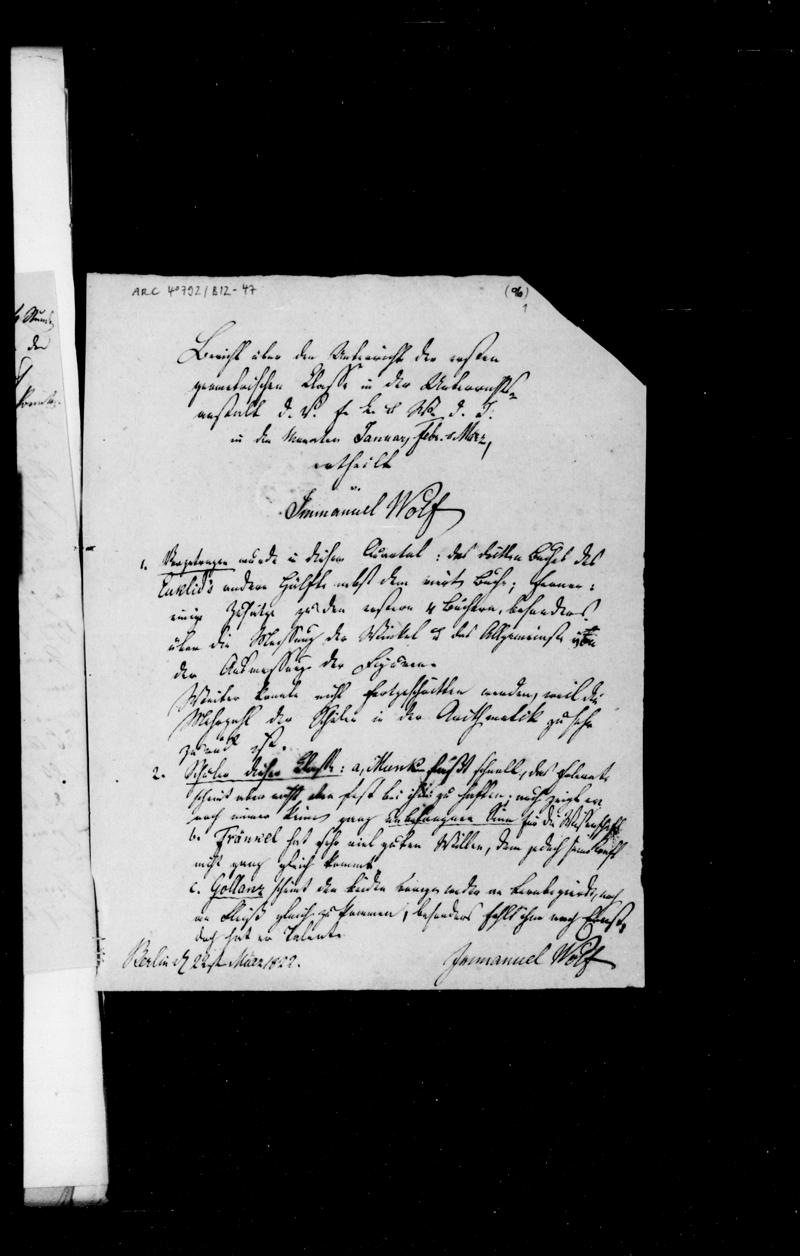 ARC 4°792/B12-47
(96)
1
Bericht über den Unterricht der ersten
geometrischen Classe in der Unterrichts-
anstalt d. V. f. C. u. W. d. J.
in den Monaten Januar, Febr. u. März,
ertheilt
v.
Immanuel Wolf
1. Vorgetragen wurde in diesem Quartal: des dritten Buches des
Euklid's andere Hälfte nebst dem vierten Buche; ferner:
einige Zusätze zu den ersten 4 Büchern, besonders
über die Messung der Winkel u. das Allgemeinste über
der Ausmessung der Figuren.
Weiter konnte nicht fortgeschritten werden, weil die
Mehrzahl der Schüler in der Arithmetik zu sehr
zurück ist.
2. Schüler dieser Classe: a, Munk faßt schnell, das Erlernte
scheint aber nicht eben fest bei ihm zu haften; auch zeigt er
noch immer keinen ganz unbefangenen Sinn für die Wissenschaft.
b. Fränkel hat sehr viel guten Willen, dem jedoch seine Kraft
nicht ganz gleich kommt.
c. Gollanz scheint den beiden weder an Lernbegierde, noch
an Fleiß gleich zu kommen; besonders fehlt ihm noch Ernst,
doch hat er Talent.
Berlin d. 22st März 1822.
Immanuel Wolf
Stund
der